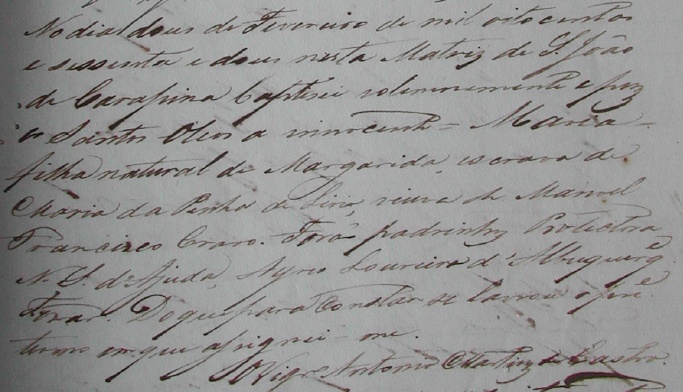 No dia dous de Fevereiro de mil oito centos
e sessenta e dous nesta Matriz de S. João
de Carapina baptisei solemnemente e puz
os Santos Oleos a innocente = Maria =
filha natural de Margarida, escrava de
Maria da Penha de Lirio, viuva de Manoel
Francisco Cravo. Forão padrinhos Protectora
N. S. d'Ajuda, Ayres Loureiro d'Albuquerqe
Do que para constar se lavrou o preze.
termo em que assignei-me.
O Vigro. Antonio Martins de Castro.